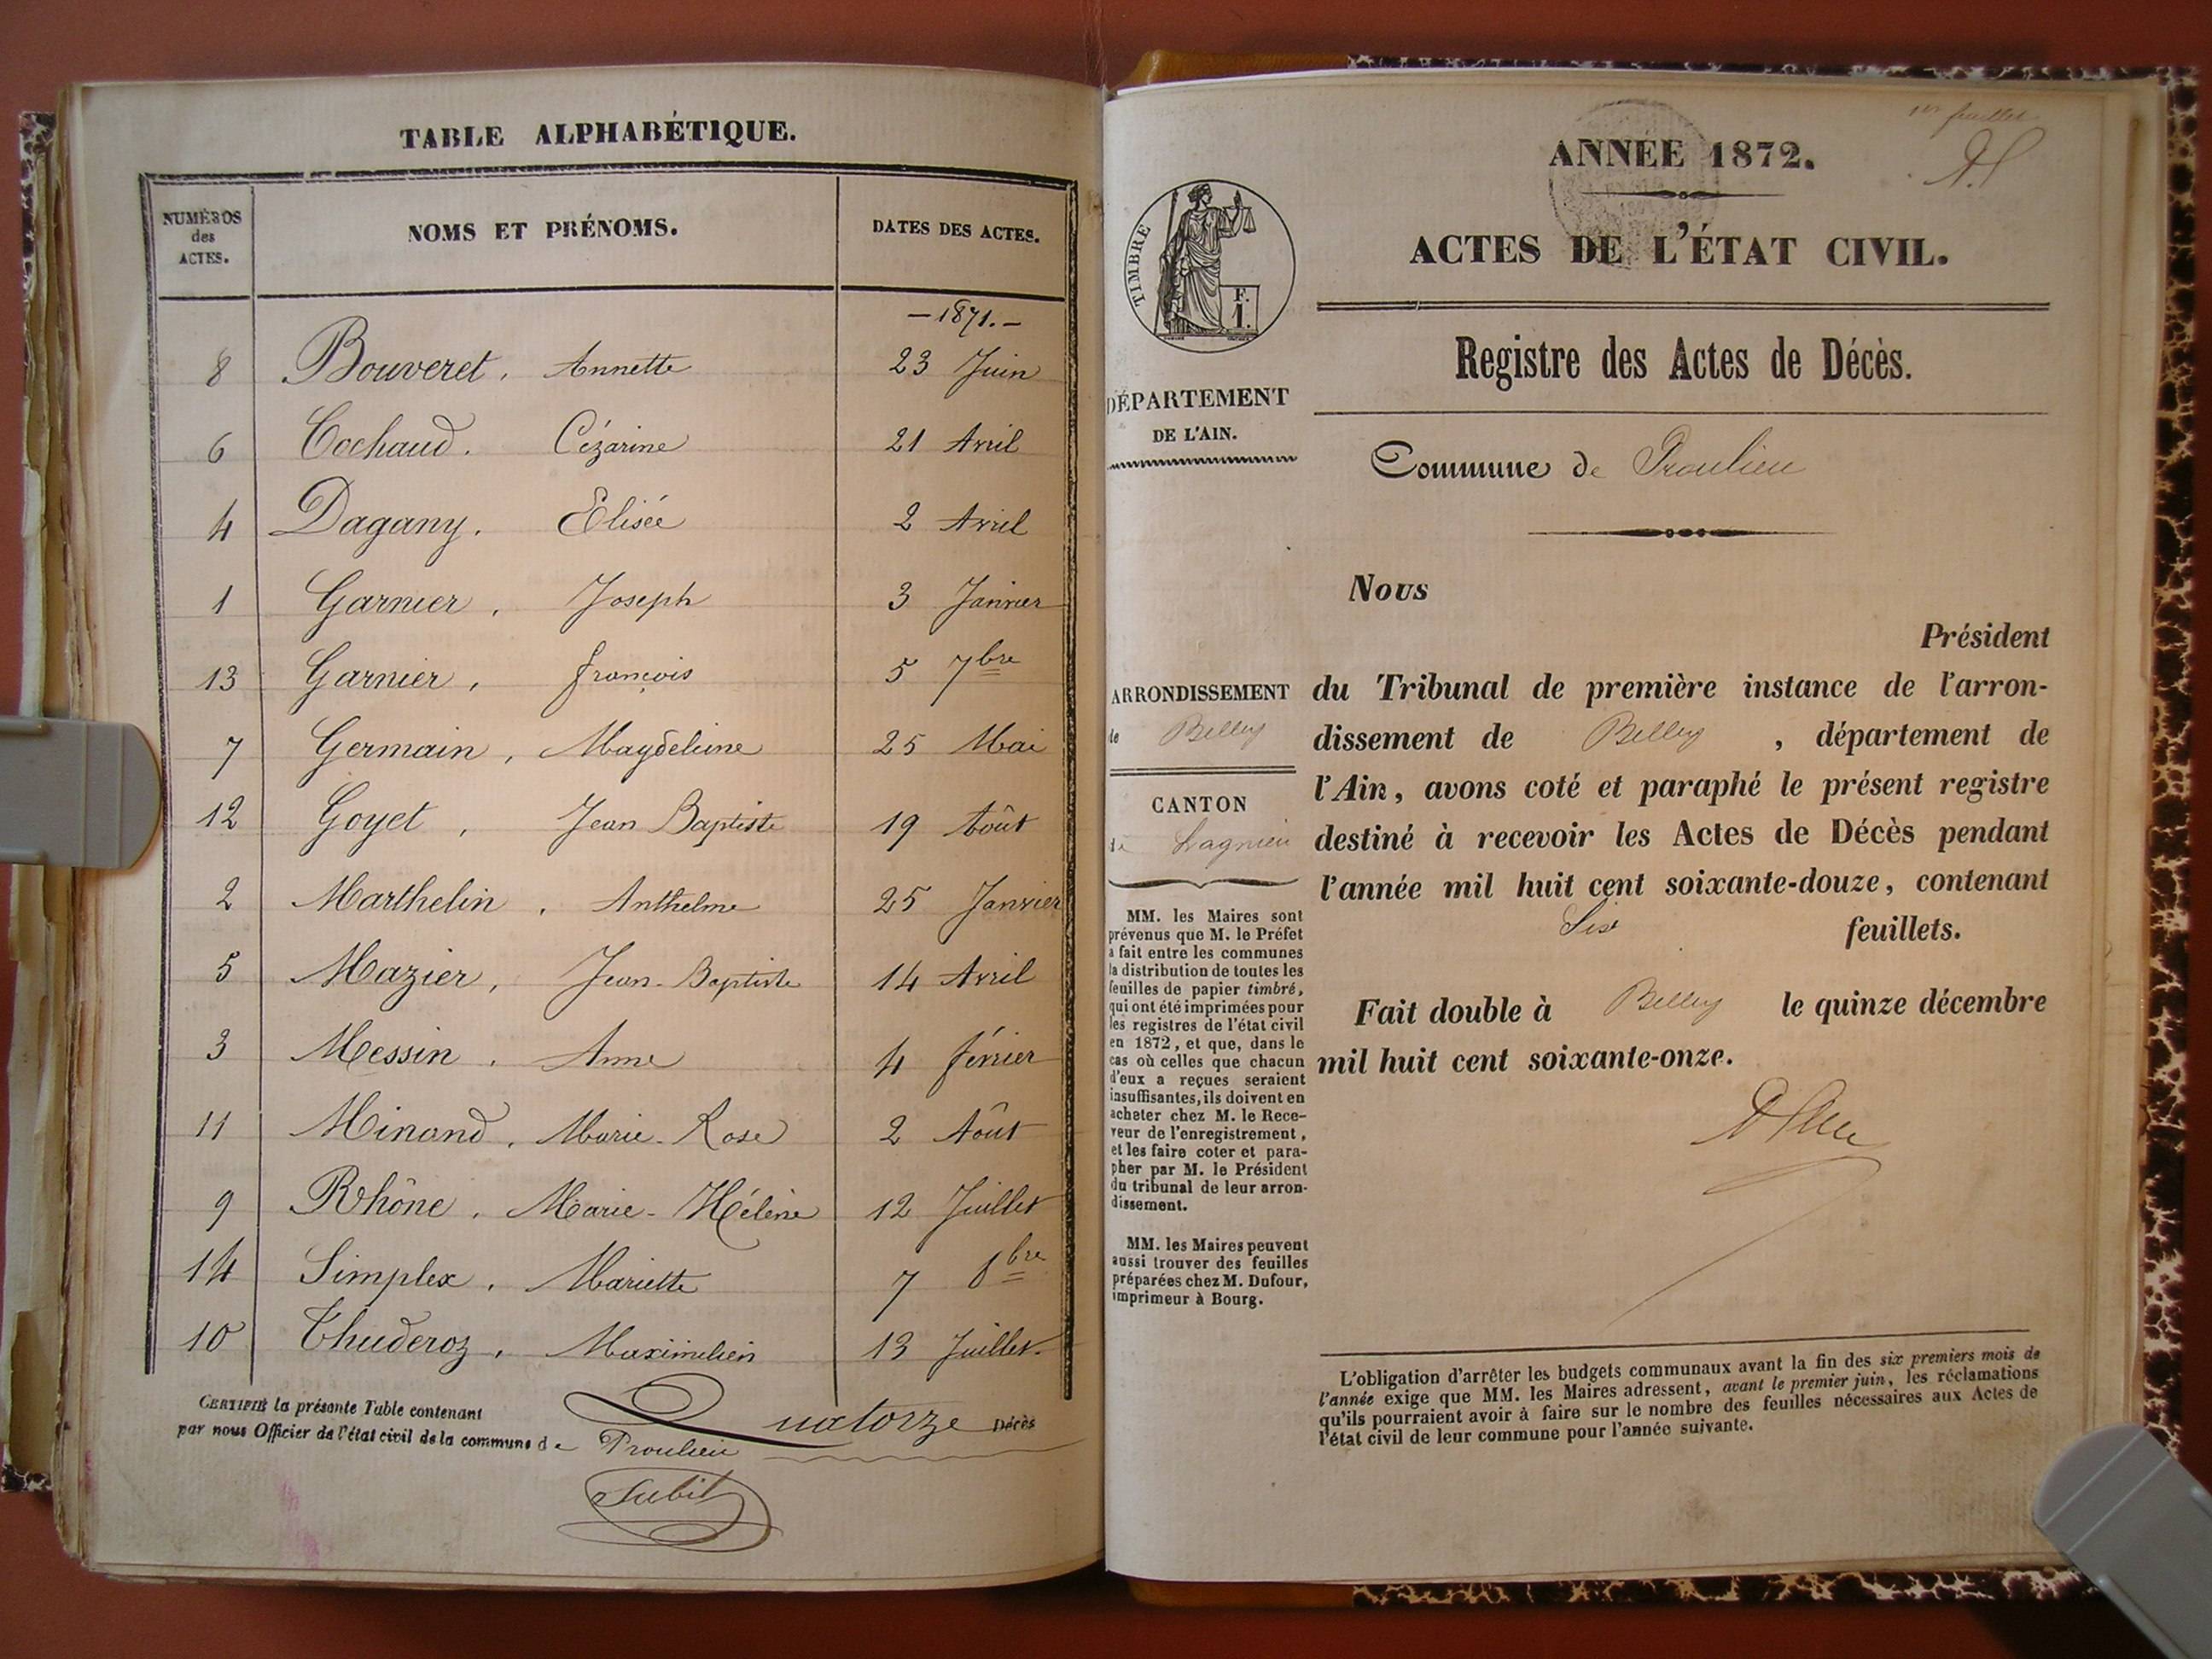 TABLE ALPHABÉTIQUE.
NUMÉROS
des
ACTES.
NOMS ET PRÉNOMS.
DATES DES ACTES.
— 1871. —
8 Bouveret, Annette 23 Juin
6 Cochaud. Cézarine 21 Avril
4 Dagany. Elisée 2 Avril
1 Garnier, Joseph 3 Janvier
13 Garnier, françois 5 7bre
7 Germain, Magdeleine 25 Mai
12 Goyet, Jean Baptiste 19 Août
2 Marthelin, Anthelme 25 Janvier
5 Mazier, Jean-Baptiste 14 Avril
3 Messin, Anne 4 février
11 Minand, Marie-Rose 2 Août
9 Rhône, Marie-Hélène 12 Juillet
14 Simplex, Mariette 7 8bre
10 Thuderoz, Maximilien 13 Juillet
CERTIFIÉ la présente Table contenant Quatorze Décès
par nous Officier de l'état civil de la commune de Proulieu
Subit
1er feuillet
ANNÉE 1872.
ACTES DE L'ÉTAT CIVIL.
TIMBRE
F.
1.
Registre des Actes de Décès.
DÉPARTEMENT
DE L'AIN.
Commune de Proulieu
ARRONDISSEMENT
de Belley
CANTON
de Lagnieu
MM. les Maires sont
prévenus que M. le Préfet
a fait entre les communes
la distribution de toutes les
feuilles de papier timbré,
qui ont été imprimées pour
les registres de l'état civil
en 1872, et que, dans le
cas où celles que chacun
d'eux a reçues seraient
insuffisantes, ils doivent en
acheter chez M. le Rece-
veur de l'enregistrement,
et les faire coter et para-
pher par M. le Président
du tribunal de leur arron-
dissement.
MM. les Maires peuvent
aussi trouver des feuilles
préparées chez M. Dufour,
imprimeur à Bourg.
Nous
Président
du Tribunal de première instance de l'arron-
dissement de Belley, département de
l'Ain, avons coté et paraphé le présent registre
destiné à recevoir les Actes de Décès pendant
l'année mil huit cent soixante-douze, contenant
Six feuillets.
Fait double à Belley le quinze décembre
mil huit cent soixante-onze.
L'obligation d'arrêter les budgets communaux avant la fin des six premiers mois de
l'année exige que MM. les Maires adressent, avant le premier juin, les réclamations
qu'ils pourraient avoir à faire sur le nombre des feuilles nécessaires aux Actes de
l'état civil de leur commune pour l'année suivante.